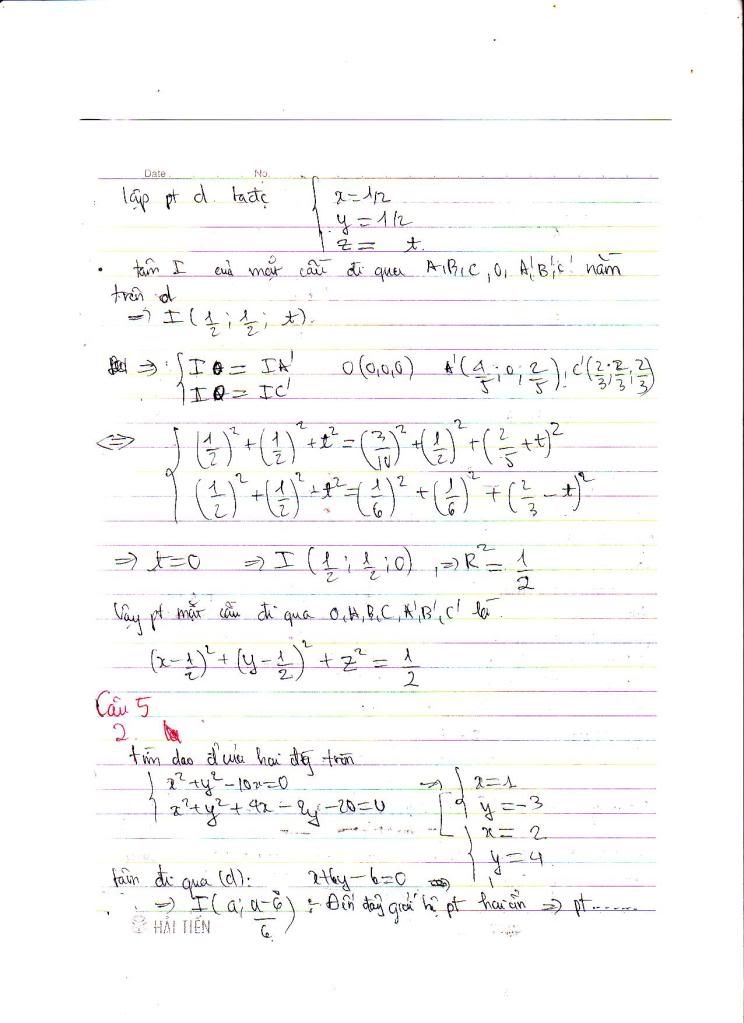 Date No.
lập pt d ta đc { x = 1/2
y = 1/2
z = t.
• tâm I của mặt cầu đi qua A,B,C,O,A',B',C' nằm
trên d
=> I(1/2; 1/2; t).
=> { IO = IA' O(0,0,0) A'(4/5; 0; 2/5), C'(2/3; 2/3; 2/3)
IO = IC'
<=> { (1/2)² + (1/2)² + t² = (3/10)² + (1/2)² + (2/5 + t)²
(1/2)² + (1/2)² + t² = (1/6)² + (1/6)² + (2/3 - t)²
=> t=0 => I(1/2; 1/2; 0), => R² = 1/2
Vậy pt mặt cầu đi qua O,A,B,C,A',B',C' là
(x - 1/2)² + (y - 1/2)² + z² = 1/2
Câu 5
2.
tìm của hai tròn
{ x² + y² - 10x = 0 => [ { x = 1
x² + y² + 4x - 2y - 20 = 0 y = -3
{ x = 2
y = 4
tâm đi qua (d): x + 6y - 6 = 0
=> I(a; a-6/6) : Đến đây giải hệ pt hai ẩn => pt.......
HẢI TIẾN